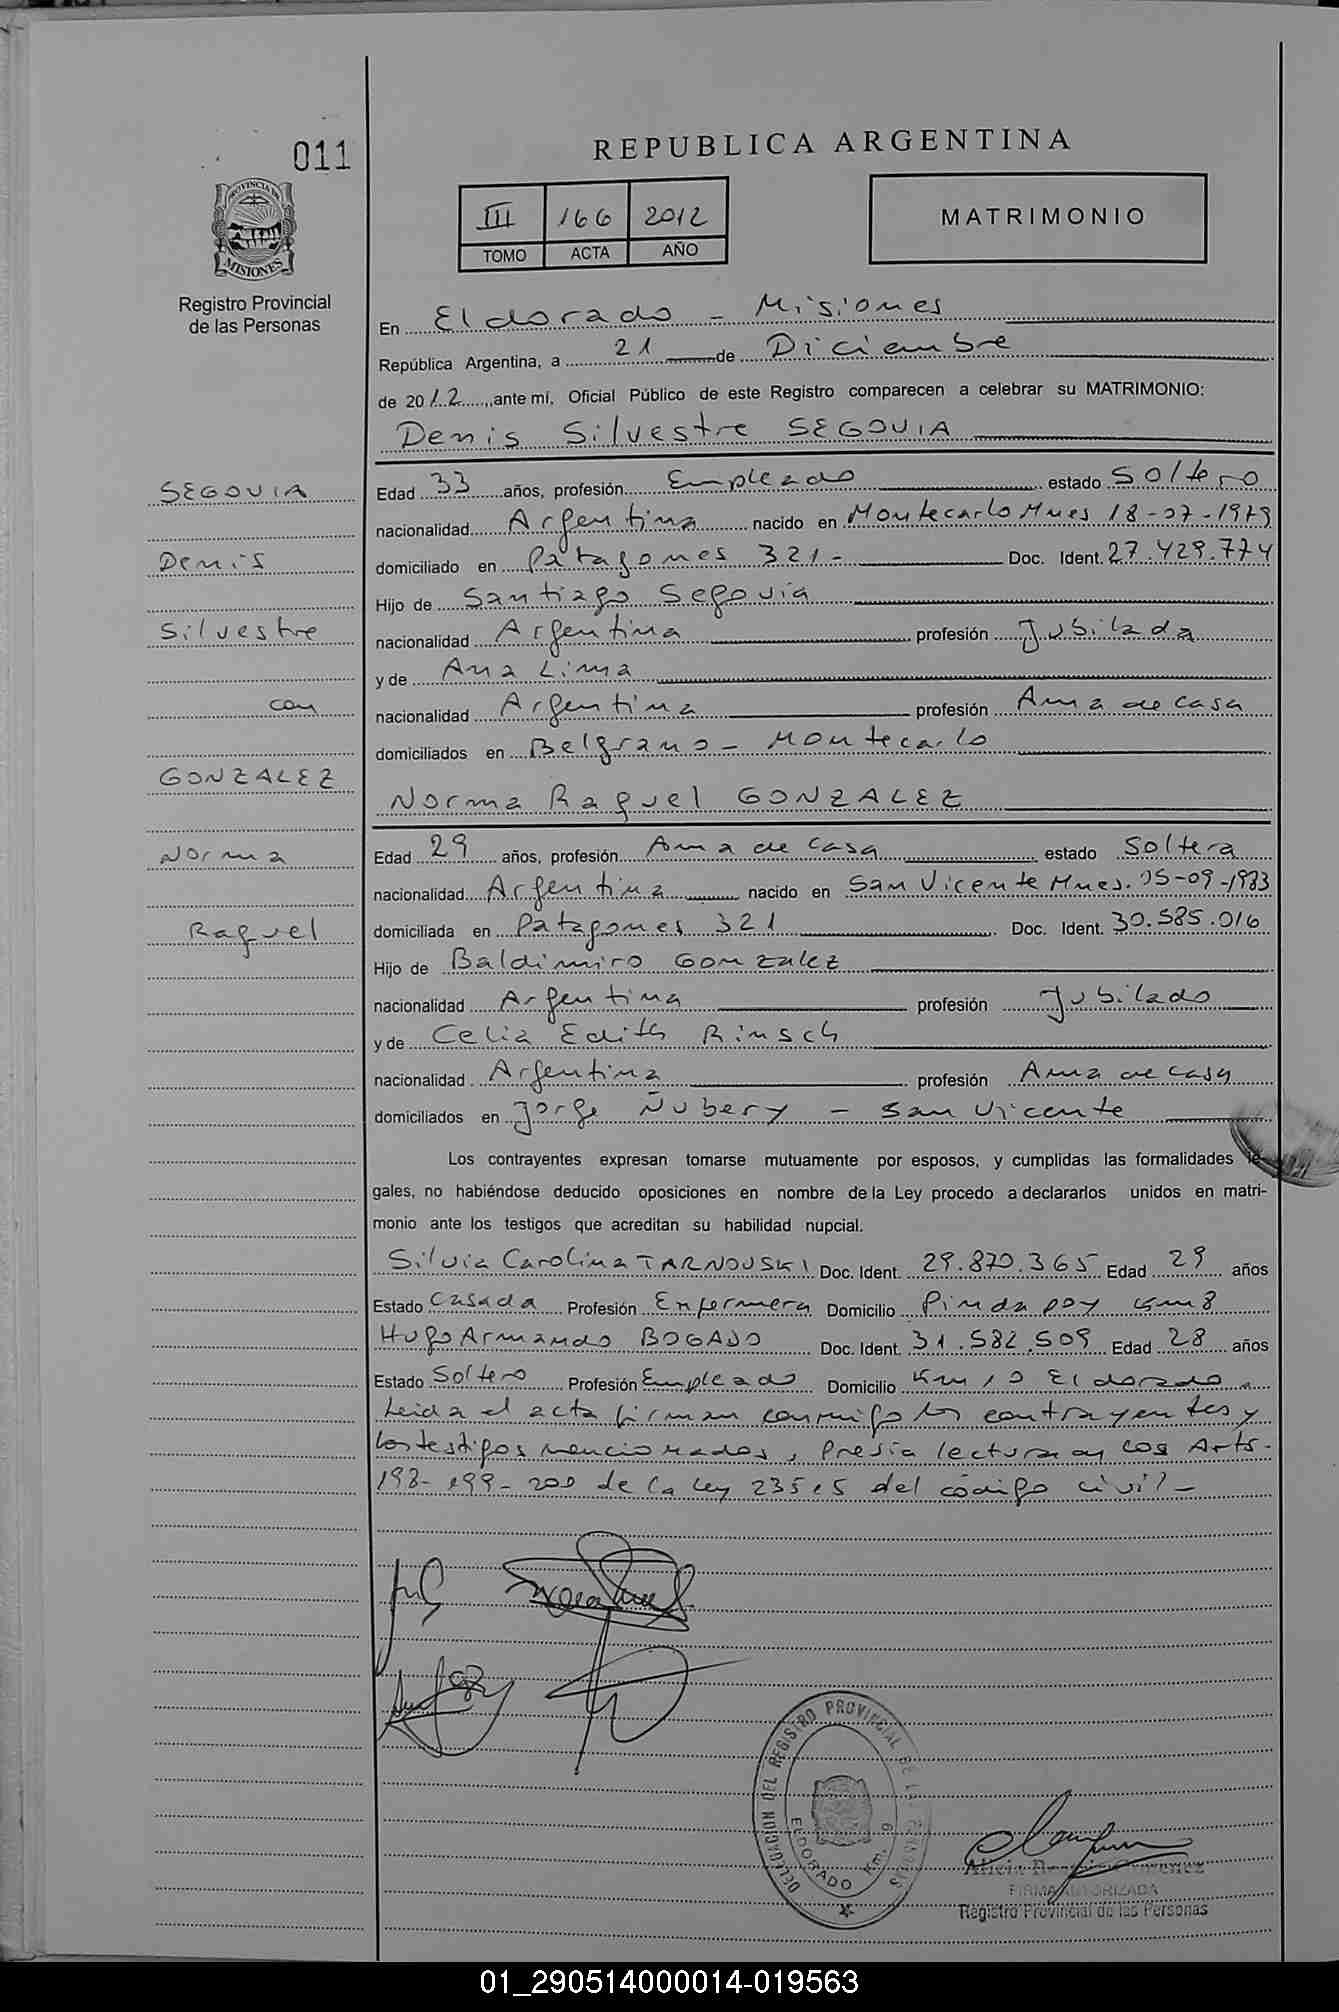 011
REPUBLICA ARGENTINA
III 166 2012
TOMO ACTA AÑO
MATRIMONIO
PROVINCIA DE
MISIONES
Registro Provincial
de las Personas
En Eldorado - Misiones
República Argentina, a 21 de Diciembre
de 2012, ante mí, Oficial Público de este Registro comparecen a celebrar su MATRIMONIO:
Denis Silvestre SEGOVIA
SEGOVIA
Denis
Silvestre
con
GONZALEZ
Norma
Raquel
Edad 33 años, profesión Empleado estado Soltero
nacionalidad Argentina nacido en Montecarlo Mnes 18-07-1979
domiciliado en Patagones 321- Doc. Ident. 27.429.774
Hijo de Santiago Segovia
nacionalidad Argentina profesión Jubilada
y de Ana Lima
nacionalidad Argentina profesión Ama de casa
domiciliados en Belgrano - Montecarlo
Norma Raquel GONZALEZ
Edad 29 años, profesión Ama de casa estado Soltera
nacionalidad Argentina nacido en San Vicente Mnes. 05-09-1983
domiciliada en Patagones 321 Doc. Ident. 30.585.016
Hijo de Baldimiro Gonzalez
nacionalidad Argentina profesión Jubilado
y de Celia Edith Rinsch
nacionalidad Argentina profesión Ama de casa
domiciliados en Jorge Ñubery - San Vicente
Los contrayentes expresan tomarse mutuamente por esposos, y cumplidas las formalidades le-
gales, no habiéndose deducido oposiciones en nombre de la Ley procedo a declararlos unidos en matri-
monio ante los testigos que acreditan su habilidad nupcial.
Silvia Carolina TARNOUSKI Doc. Ident. 29.870.365 Edad 29 años
Estado Casada Profesión Enfermera Domicilio Pindapoy Km 8
Hugo Armando BOGADO Doc. Ident. 31.582.509 Edad 28 años
Estado Soltero Profesión Empleado Domicilio Km 10 Eldorado
Leida el acta firman conmigo los contrayentes y
los testigos mencionados, previa lectura de los Arts.
198-199-200 de la Ley 23515 del código civil -
DELEGACION DEL REGISTRO PROVINCIAL DE LAS PERSONAS
ELDORADO Km. 9
Alicia
FIRMA AUTORIZADA
Registro Provincial de las Personas
01_290514000014-019563